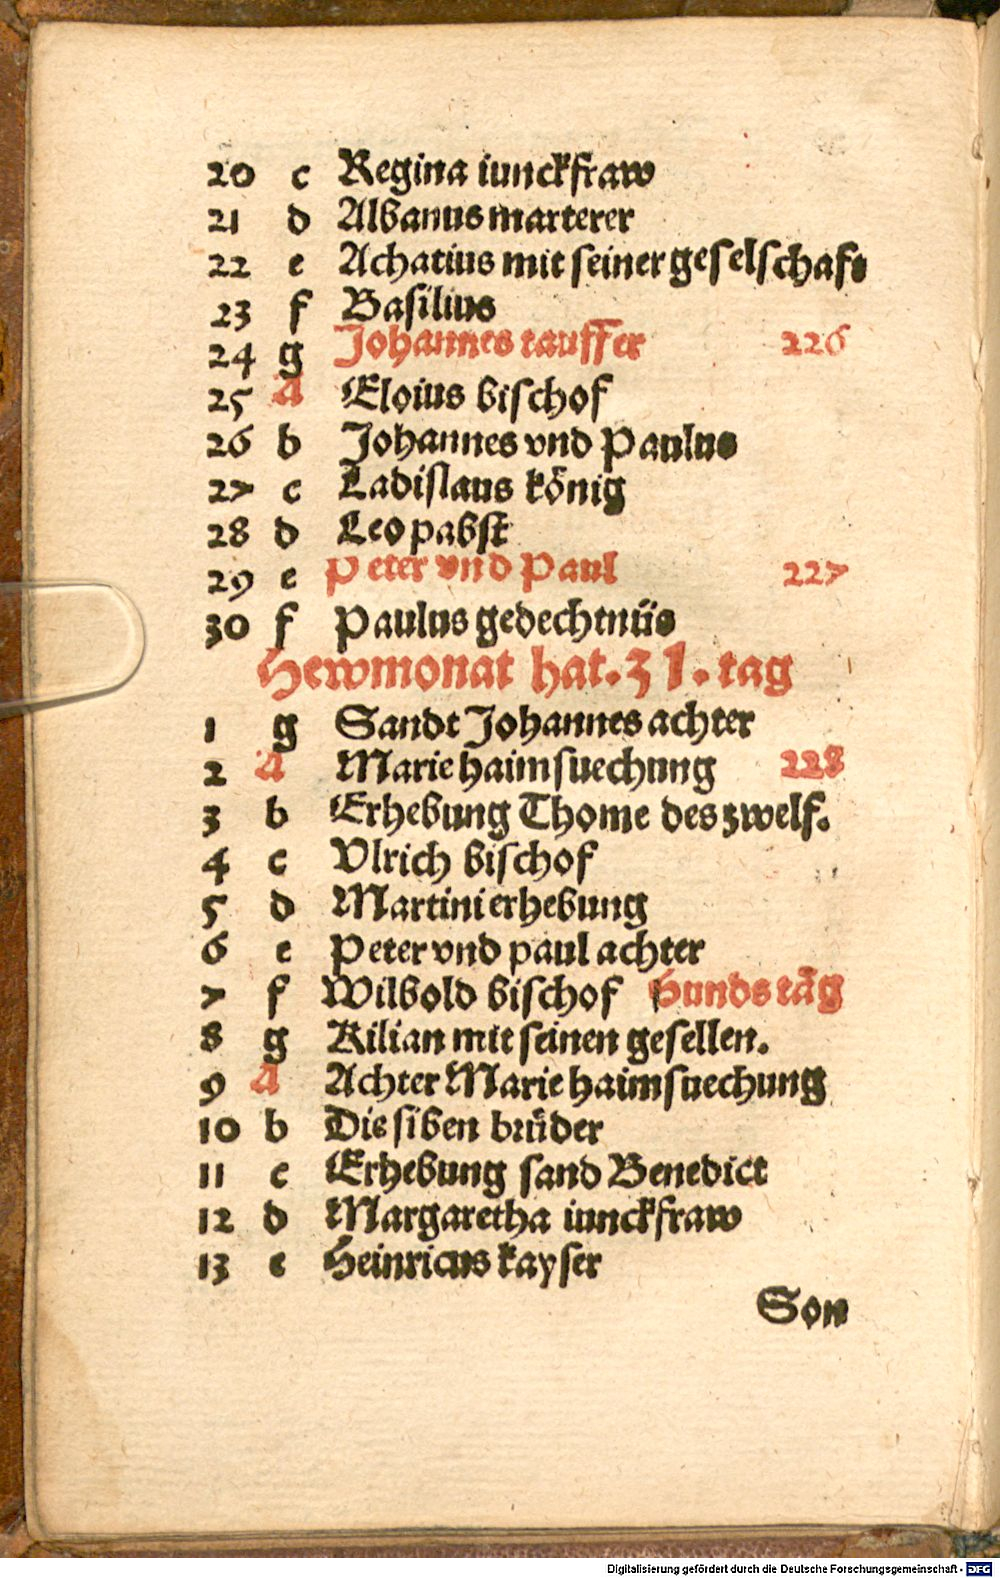 20 c Regina iunckfraw
21 d Albanus marterer
22 e Achatius mit seiner geselschaft
23 f Basilius
24 g Johannes tauffer 226
25 A Eloius bischof
26 b Johannes vnd Paulus
27 c Ladislaus könig
28 d Leo pabst
29 e Peter vnd Paul 227
30 f Paulus gedechtnüs
Hewmonat hat. 31. tag
1 g Sandt Johannes achter
2 A Marie haimsuechung 228
3 b Erhebung Thome des zwelf.
4 c Vlrich bischof
5 d Martini erhebung
6 e Peter vnd paul achter
7 f Wilbold bischof Hunds täg
8 g Kilian mit seinen gesellen.
9 A Achter Marie haimsuechung
10 b Die siben brüder
11 c Erhebung sand Benedict
12 d Margaretha iunckfraw
13 e Heinricus kayser
Son
Digitalisierung gefördert durch die Deutsche Forschungsgemeinschaft - DFG